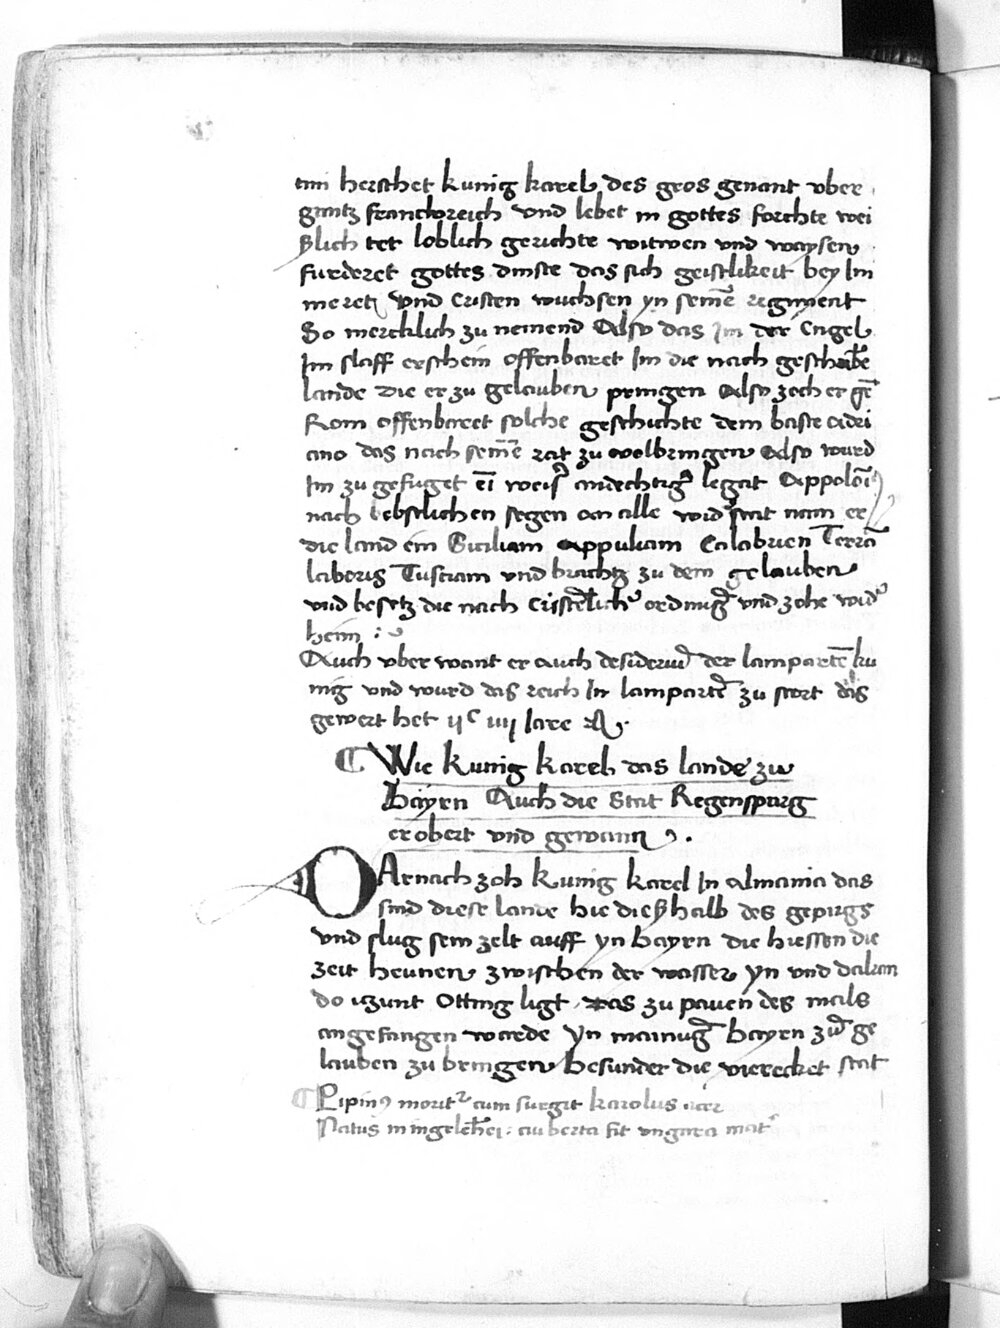 hersthet kunig karel des gros genant vber
gantz franckreich vnd lebet in gottes forchte wei
ßlich tet loblich gerichte witwen vnd waysen
furderet gottes dinste das sich geistlikeit bey Im
meret vnd Cristen wuchsen yn seinē regiment
So mercklich zu nemend Also das Im der Engel
Im slaff erschein offenbaret Im die nach geschribē
lande die er zu gelauben pringen Also zoch er gē
Rom offenbaret solche geschichte dem baste adri
ano das nach seinē rat zu volbringen Also wurd
Im zu gefuget eī weiser andechtiger legat Appoloni
nach bebstlichen segen an alle widerstat nam er
die land ein Siciliam appuliam Calabrien Terrā
laboris Tusciam vnd brachtz zu dem gelauben
vnd besetz die nach cristēlicher ordnung vnd zohe wider
heim :
Auch vber want er auch desiderium der lampartē ku
nig vnd wurd das reich In lampartē zu stort das
gewert het ijᶜ iiij Iare
¶ Wie kunig karel das lande zu
Bayrn Auch die Stat Regenspurg
erobert vnd gewann .
DArnach zoh kunig karel In almania das
sind diese lande hie dießhalb des gepirgs
vnd slug sein zelt auff yn Bayrn die hiessen die
zeit heunen zwischen der wasser yn vnd
do iczunt Otting ligt das zu pauen des mals
angefangen warde yn mainug Bayrn zum ge
lauben zu bringen besunder die vierecket stat
¶ Pipin9 morit̉ cum surgit karolus
Natus in ingelēhei: au berta fit vngara mat̉